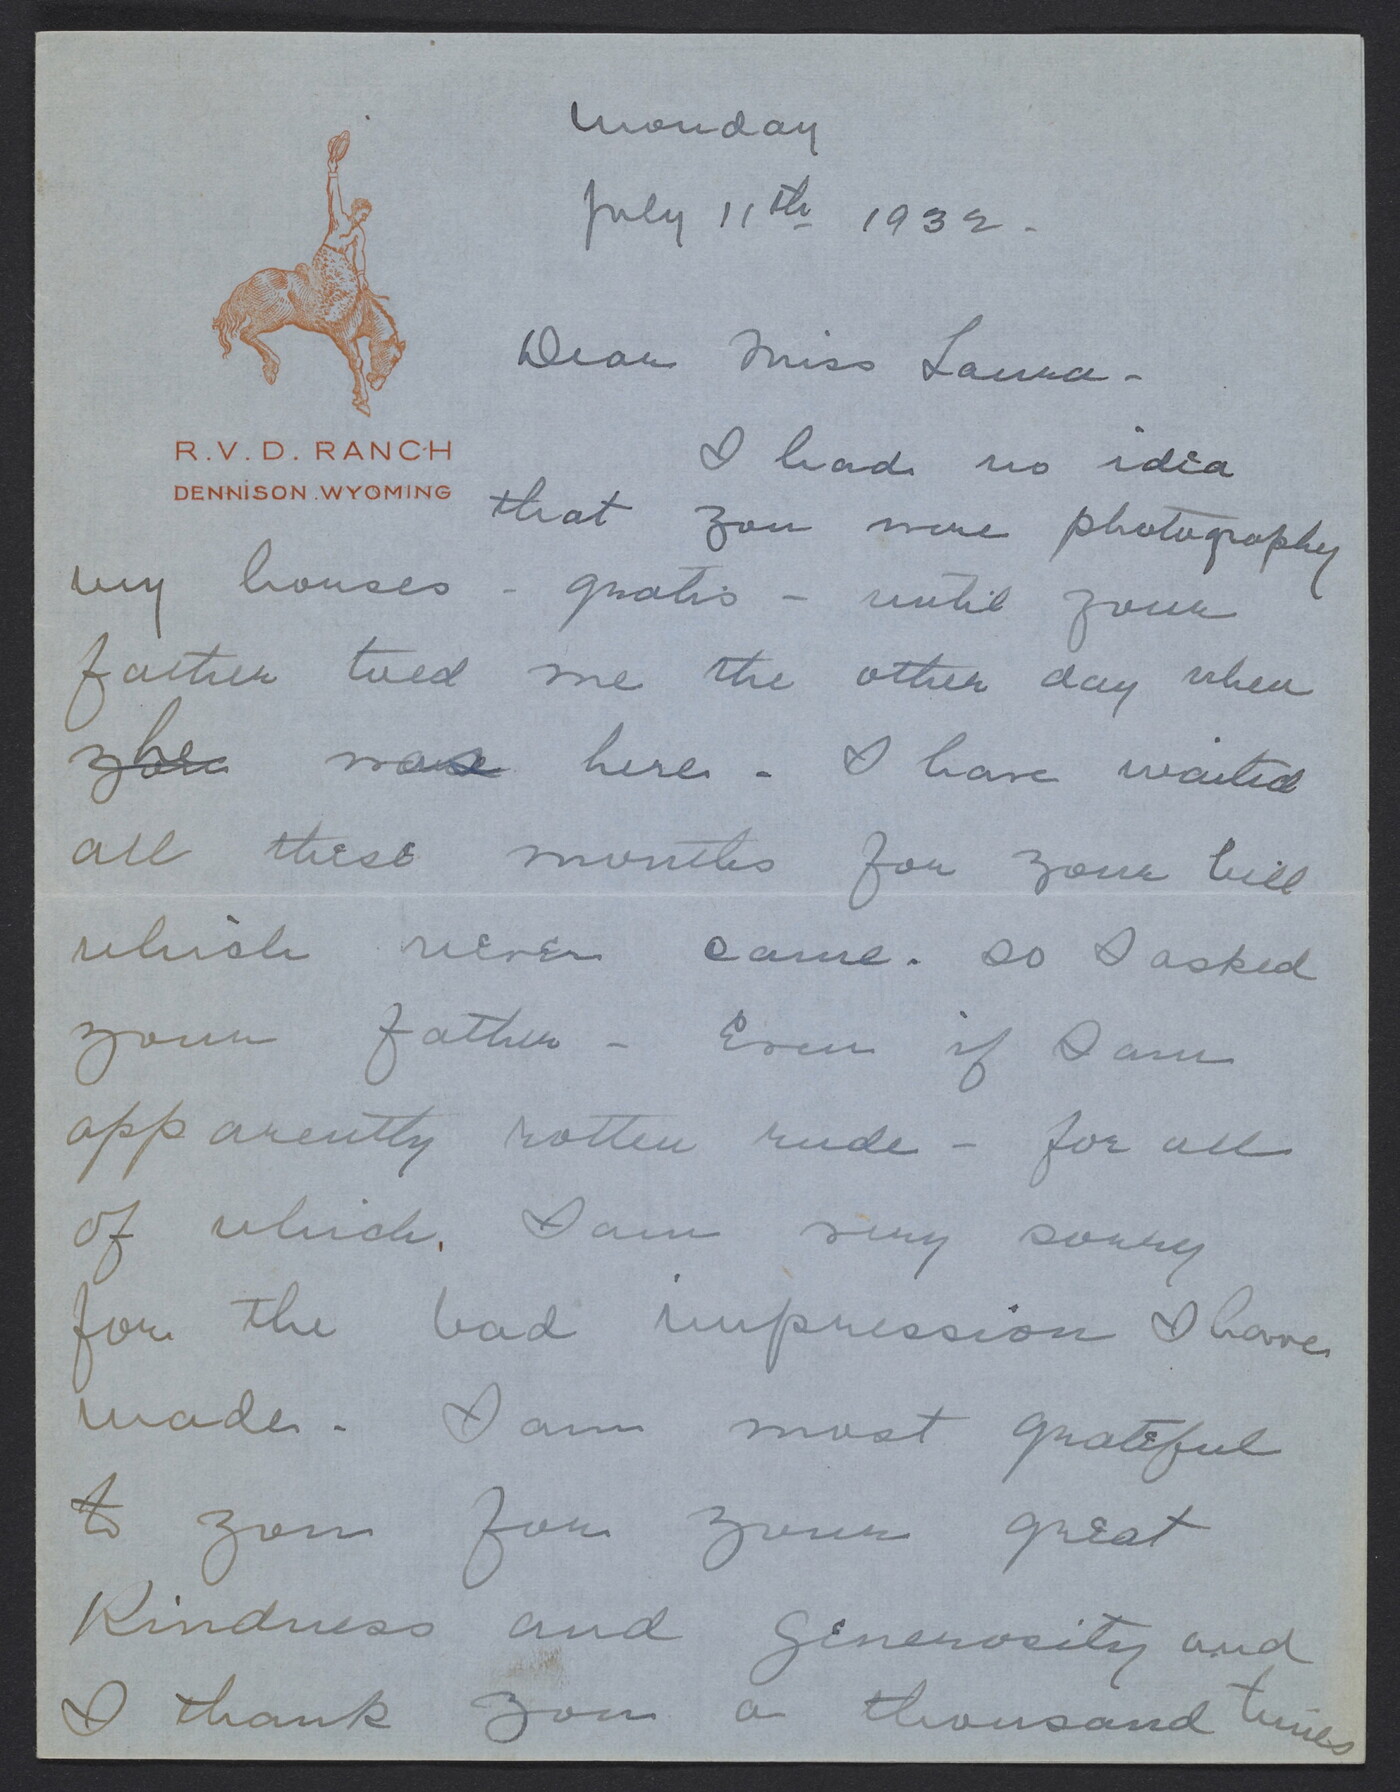 Monday
July 11th 1932.
R.V.D. RANCH
DENNISON. WYOMING
Dear Miss Laura -
I had no idea
that you were photography
my houses - gratis - until your
father toed me the other day when
was here - I have waited
all these months for your bill
which never came. So I asked
your father - Even if I am
apparently rotten rude - for all
of which. I am very sorry
for the bad impression I have
made - I am most grateful
to you for your great
Kindness and Generosity and
I thank you a thousand times